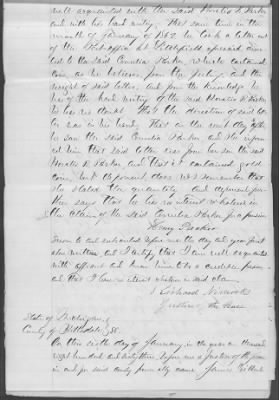 well acquainted with the said Horatio N Parker
and with his hand writing. That some time in the
month of January of 1862 he took a letter out
of the Post office at Litchfield aforesaid directed
to the said Cornelia Parker, which contained
coin as he believes from the feeling and the
weight of said letter, and from the knowledge he
has of the hand writing of the said Horatio N Parker
he has no doubt that the direction of said letter
was in his hand. That on the same day
he saw the said Cornelia Parker and she informed
him that said letter was from her son the said
Horatio N Parker and that it contained gold
coin but deponent does not remember that
she stated the quantity and deponent further
says that he has no interest whatever in
the claim of the said Cornelia Parker for a pension
Sworn to and subscribed before me the day and year first
above written and I certify that I am well acquainted
with affiant and know him to be a credible person
and that I have no interest whatever in said claim
Justice of the Peace
State of Michigan
County of Hillsdale ss.
On this sixth day of January, in the year one thousand
eight hundred and sixty three, before me a Justice of the peace
in and for said county personally came James